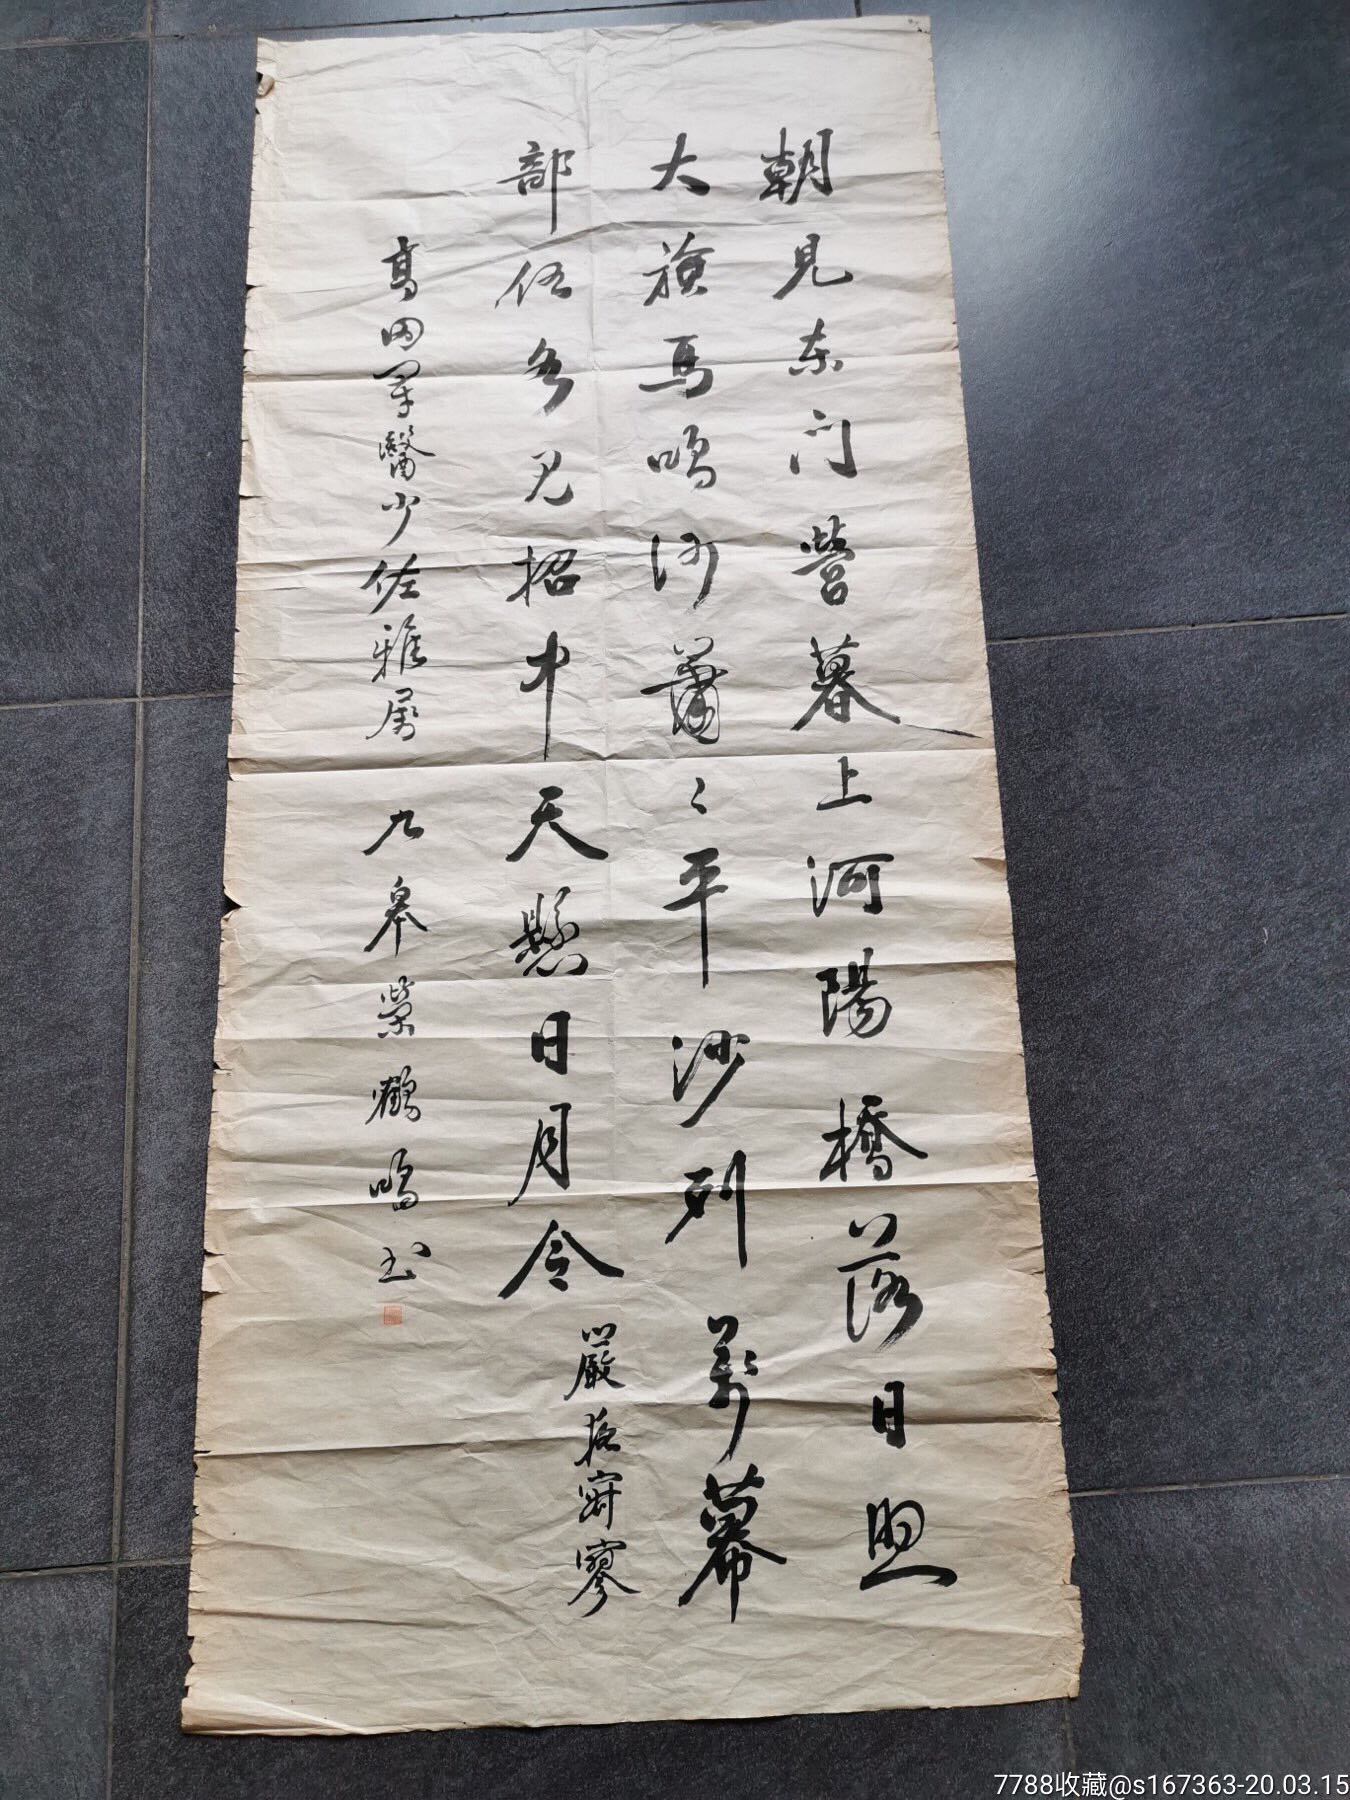 朝見东门營暮上河陽橋落日照
大旗馬鳴何蕭々平沙列萬幕
部伍各見招中天懸日月令
嚴夜寂寥
高田軍醫少佐雅属 九皋榮鶴鳴书
7788收藏@s167363-20.03.15